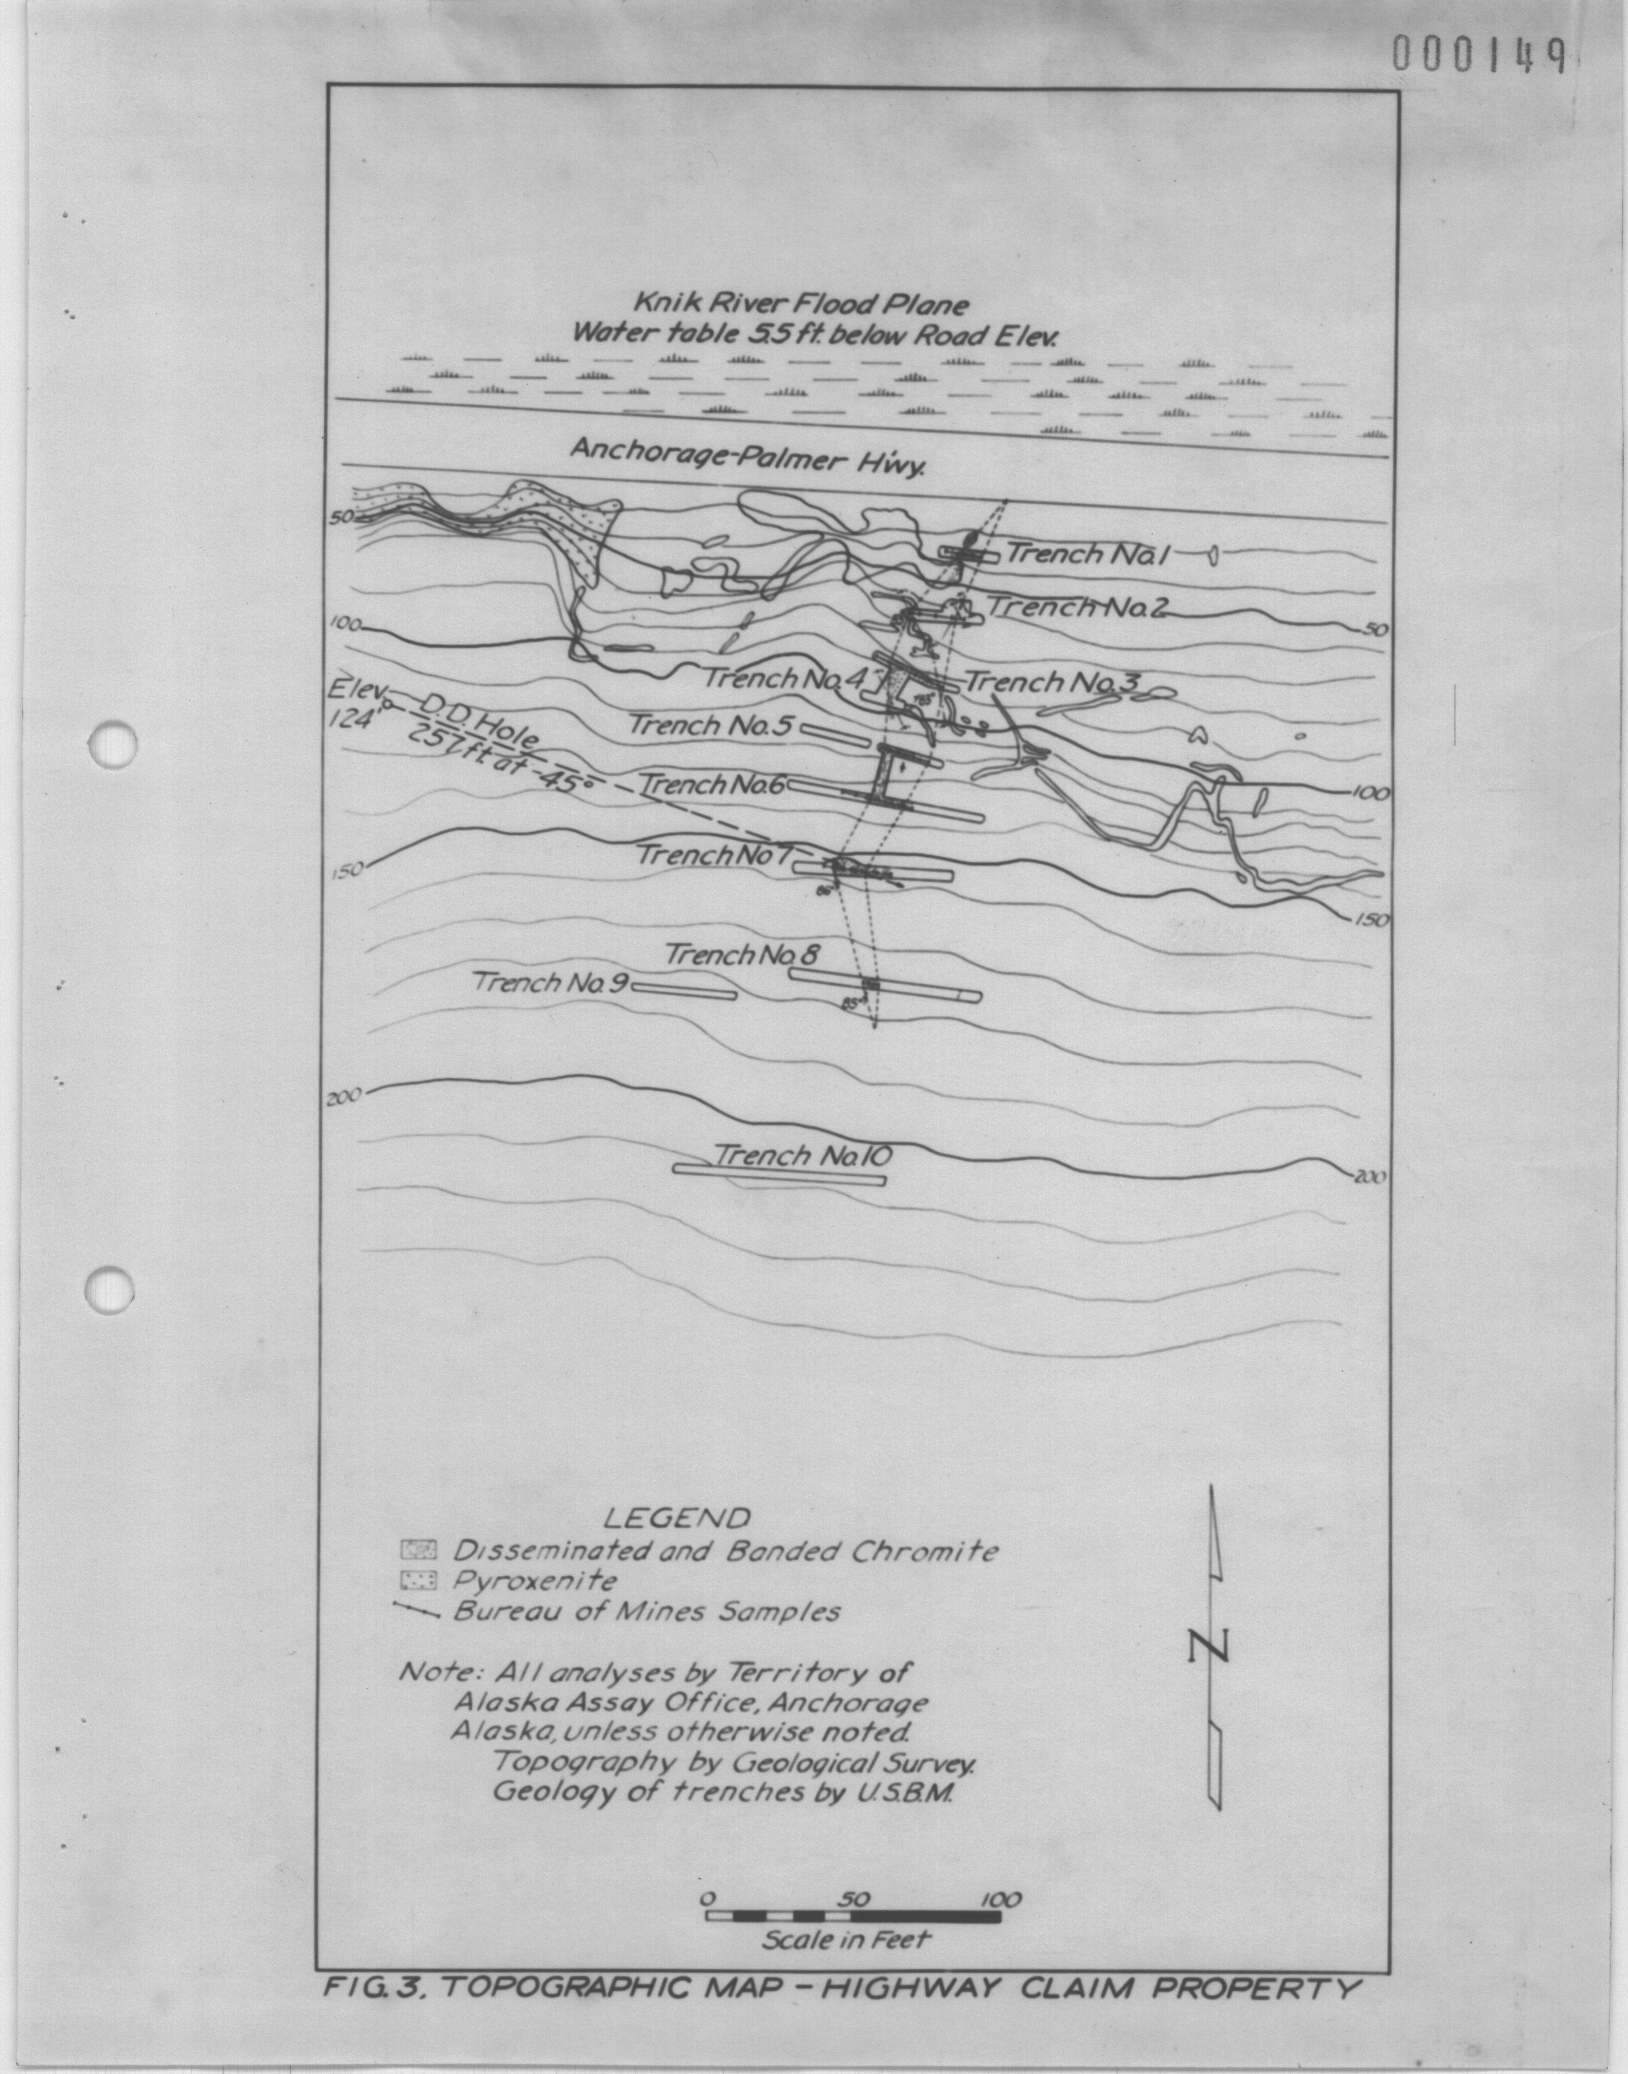 000149
Knik River Flood Plane
Water table 5.5 ft. below Road Elev.
Anchorage-Palmer Hwy.
50
Trench No.1
Trench No.2
100
50
Trench No.4
Trench No.3
Elev.
124'
D.D. Hole
257 ft at -45°
Trench No.5
Trench No.6
100
Trench No 7
150
150
Trench No.8
Trench No.9
85°
200
Trench No.10
200
LEGEND
Disseminated and Banded Chromite
Pyroxenite
Bureau of Mines Samples
Note: All analyses by Territory of
Alaska Assay Office, Anchorage
Alaska, unless otherwise noted.
Topography by Geological Survey.
Geology of trenches by U.S.B.M.
N
0 50 100
Scale in Feet
FIG. 3. TOPOGRAPHIC MAP - HIGHWAY CLAIM PROPERTY